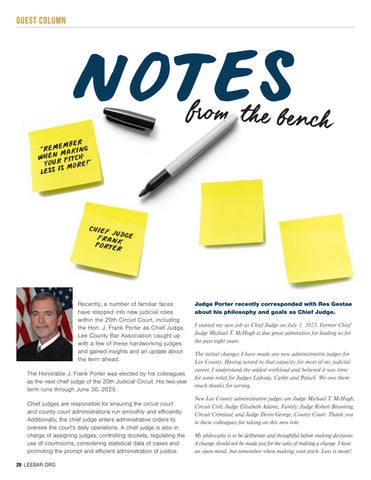 GUEST COLUMN
NOTES
from the bench
"REMEMBER
WHEN MAKING
YOUR PITCH-
LESS IS MORE!"
CHIEF JUDGE
FRANK
PORTER
Recently, a number of familiar faces
have stepped into new judicial roles
within the 20th Circuit Court, including
the Hon. J. Frank Porter as Chief Judge.
Lee County Bar Association caught up
with a few of these hardworking judges
and gained insights and an update about
the term ahead.
The Honorable J. Frank Porter was elected by his colleagues
as the next chief judge of the 20th Judicial Circuit. His two-year
term runs through June 30, 2025.
Chief judges are responsible for ensuring the circuit court
and county court administrations run smoothly and efficiently.
Additionally, the chief judge enters administrative orders to
oversee the court's daily operations. A chief judge is also in
charge of assigning judges, controlling dockets, regulating the
use of courtrooms, considering statistical data of cases and
promoting the prompt and efficient administration of justice.
Judge Porter recently corresponded with Res Gestae
about his philosophy and goals as Chief Judge.
I started my new job as Chief Judge on July 1, 2023. Former Chief
Judge Michael T. McHugh is due great admiration for leading us for
the past eight years.
The initial changes I have made are new administrative judges for
Lee County. Having served in that capacity for most of my judicial
career, I understand the added workload and believed it was time
for some relief for Judges Laboda, Carlin and Paluck. We owe them
much thanks for serving.
New Lee County administrative judges are Judge Michael T. McHugh,
Circuit Civil; Judge Elisabeth Adams, Family; Judge Robert Branning,
Circuit Criminal; and Judge Devin George, County Court. Thank you
to these colleagues for taking on this new role.
My philosophy is to be deliberate and thoughtful before making decisions.
A change should not be made just for the sake of making a change. I have
an open mind, but remember when making your pitch: Less is more!
20 LEEBAR.ORG